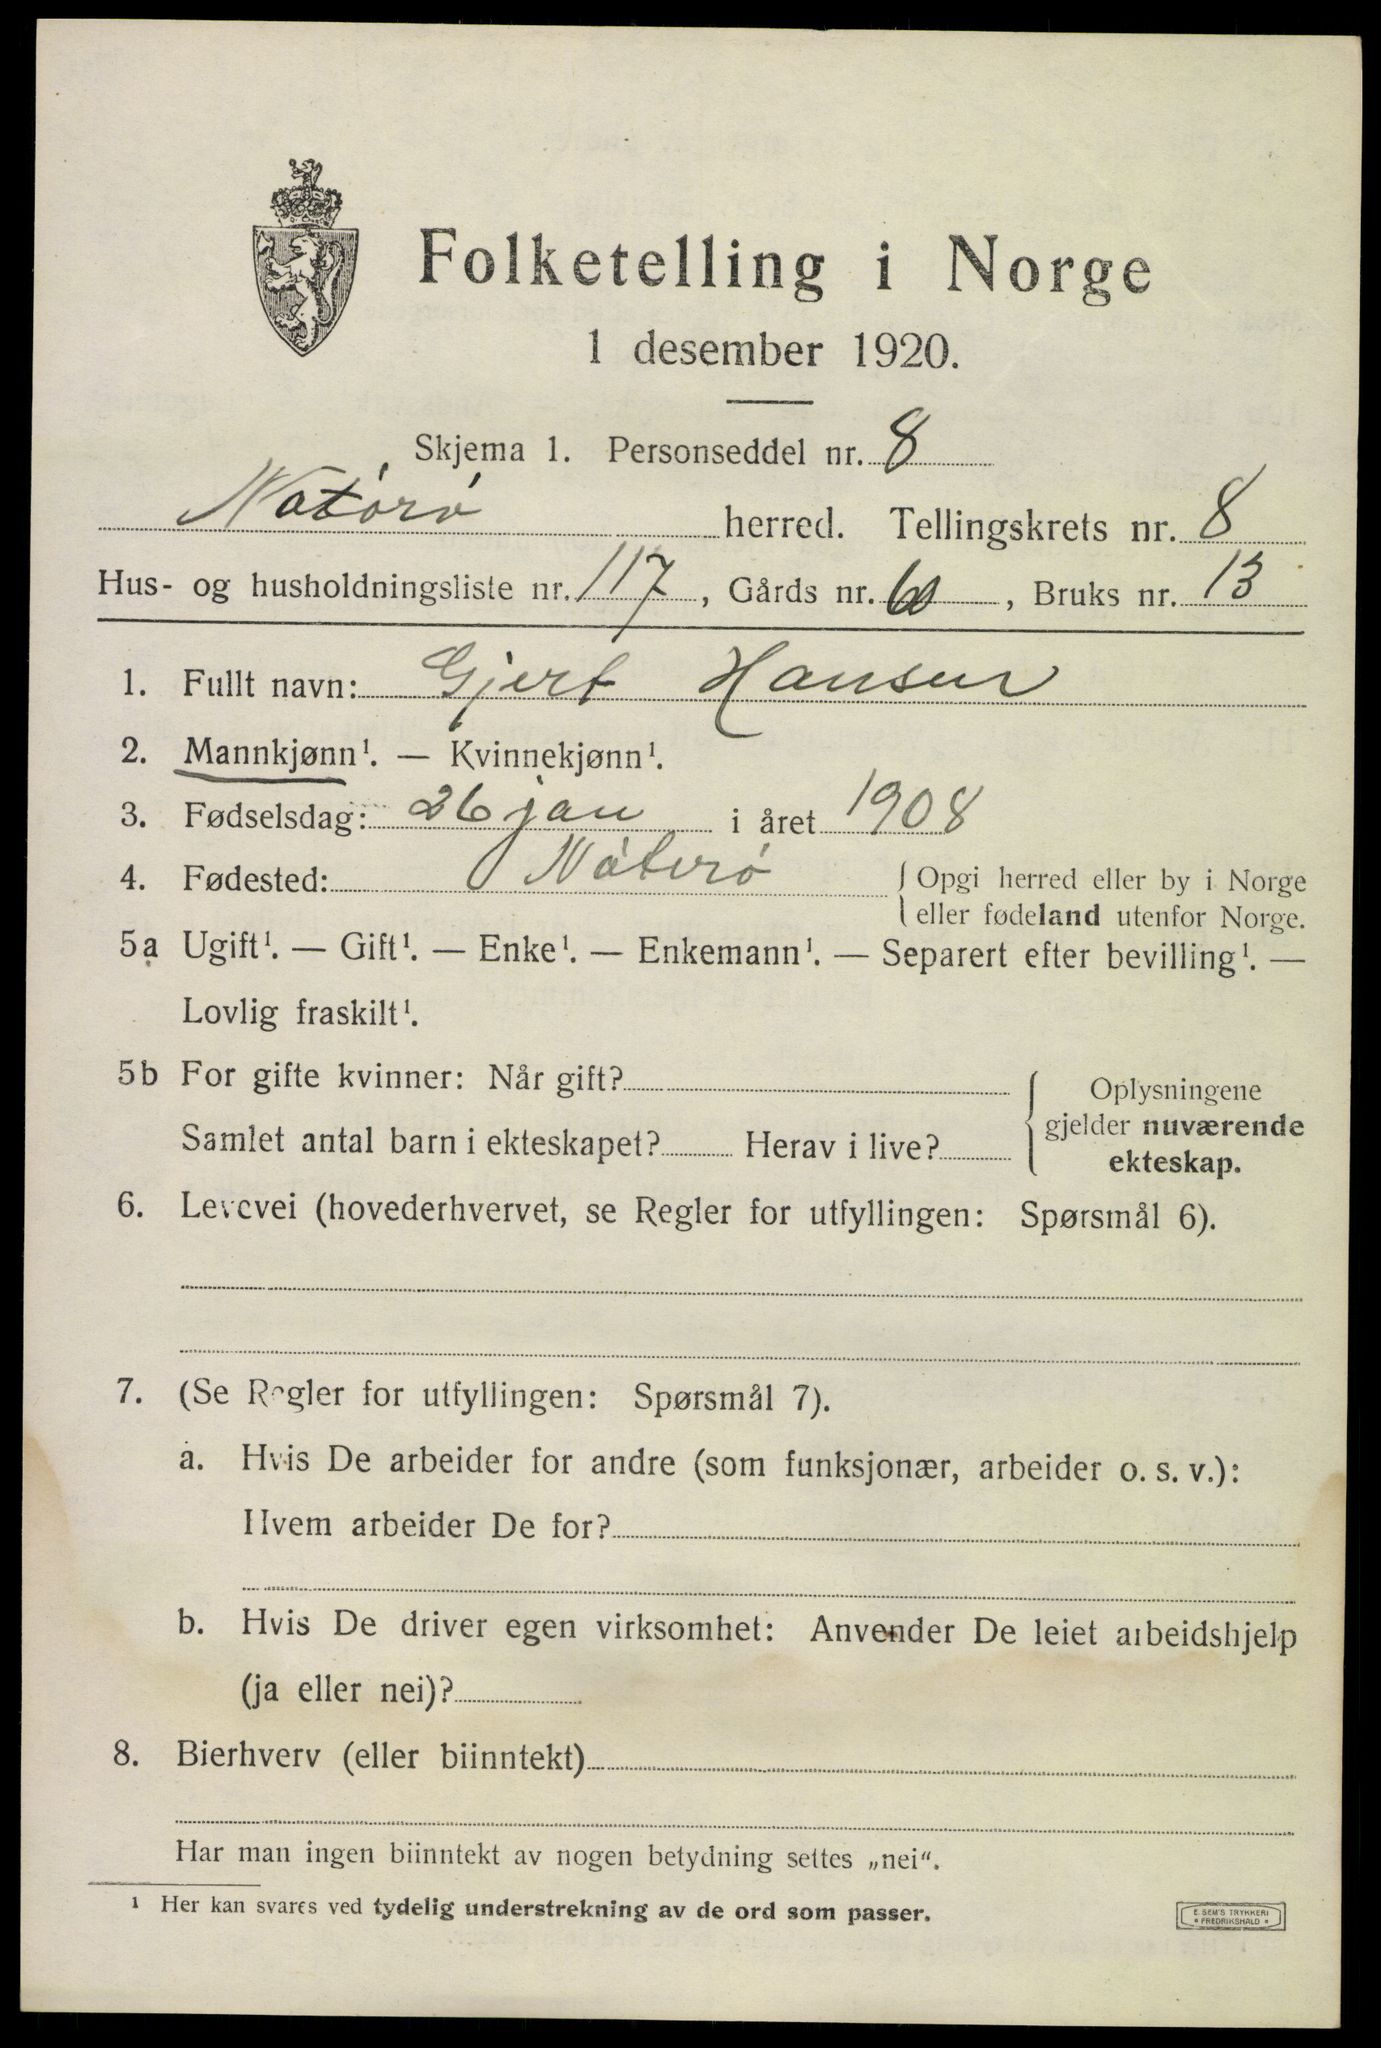 Folketelling i Norge
1 desember 1920.
Skjema 1. Personseddel nr. 8
Nøtørø herred. Tellingskrets nr. 8
Hus- og husholdningsliste nr. 117, Gårds nr. , Bruks nr. 13
1. Fullt navn: Gjert Hansen
2. Mannkjønn¹. — Kvinnekjønn¹.
3. Fødselsdag: 26 jan i året 1908
4. Fødested: Nøterø { Opgi herred eller by i Norge
eller fødeland utenfor Norge.
5a Ugift¹. — Gift¹. — Enke¹. — Enkemann¹. — Separert efter bevilling¹. —
Lovlig fraskilt¹.
5b For gifte kvinner: Når gift?
Samlet antal barn i ekteskapet? Herav i live? { Oplysningene
gjelder nuværende
ekteskap.
6. Levevei (hovederhvervet, se Regler for utfyllingen: Spørsmål 6).
7. (Se Regler for utfyllingen: Spørsmål 7).
a. Hvis De arbeider for andre (som funksjonær, arbeider o. s. v.):
Hvem arbeider De for?
b. Hvis De driver egen virksomhet: Anvender De leiet arbeidshjelp
(ja eller nei)?
8. Bierhverv (eller biinntekt)
Har man ingen biinntekt av nogen betydning settes „nei“.
¹ Her kan svares ved tydelig understrekning av de ord som passer.
E. SEM'S TRYKKERI
* FREDRIKSHALD *